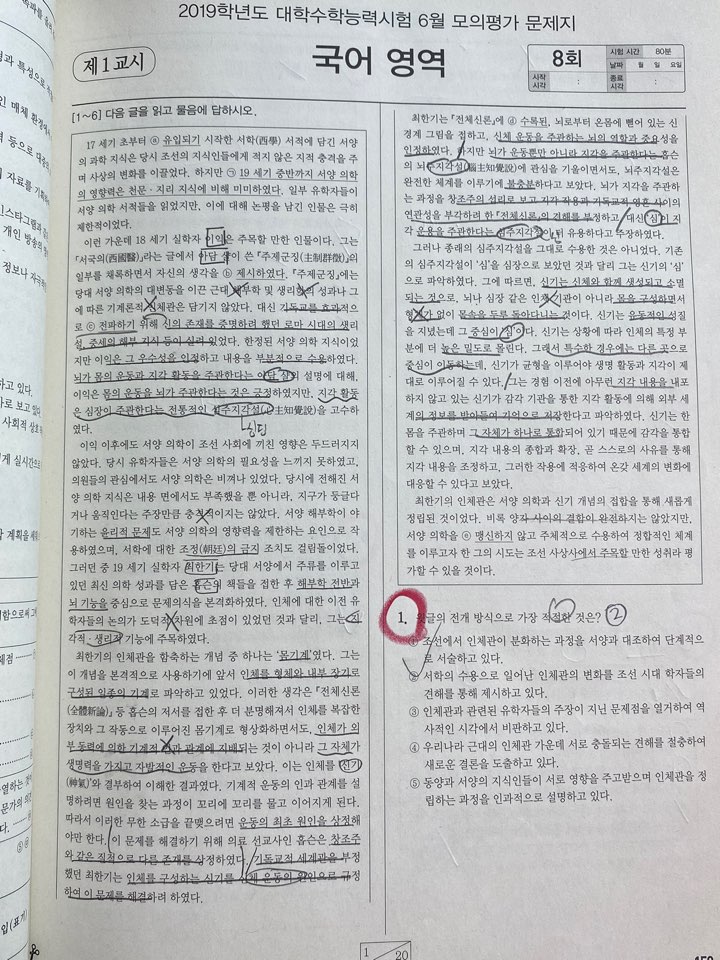 2019학년도 대학수학능력시험 6월 모의평가 문제지
제1교시
국어 영역
8회
시험 시간 80분
날짜 월 일 요일
시작 시각 :
종료 시각 :
[1~6] 다음 글을 읽고 물음에 답하시오.
17 세기 초부터 ⓐ 유입되기 시작한 서학(西學) 서적에 담긴 서양
의 과학 지식은 당시 조선의 지식인들에게 적지 않은 지적 충격을 주
며 사상의 변화를 이끌었다. 하지만 ㉠ 19 세기 중반까지 서양 의학
의 영향력은 천문·지리 지식에 비해 미미하였다. 일부 유학자들이
서양 의학 서적들을 읽었지만, 이에 대해 논평을 남긴 인물은 극히
제한적이었다.
이런 가운데 18 세기 실학자 이익은 주목할 만한 인물이다. 그는
「서국의(西國醫)」라는 글에서 아담 샬이 쓴 『주제군징(主制群徵)』의
일부를 채록하면서 자신의 생각을 ⓑ 제시하였다. 『주제군징』에는
당대 서양 의학의 대변동을 이끈 근대 해부학 및 생리학의 성과나 그
에 따른 기계론적 인체관은 담기지 않았다. 대신 기독교를 효과적으
로 ⓒ 전파하기 위해 신의 존재를 증명하려 했던 로마 시대의 생리
설, 중세의 해부 지식 등이 실려 있었다. 한정된 서양 의학 지식이었
지만 이익은 그 우수성을 인정하고 내용을 부분적으로 수용하였다.
뇌가 몸의 운동과 지각 활동을 주관한다는 아담 샬의 설명에 대해,
이익은 몸의 운동을 뇌가 주관한다는 것은 긍정하였지만, 지각 활동
은 심장이 주관한다는 전통적인 심주지각설(心主知覺說)을 고수하
였다.
심팀
이익 이후에도 서양 의학이 조선 사회에 끼친 영향은 두드러지지
않았다. 당시 유학자들은 서양 의학의 필요성을 느끼지 못하였고,
의원들의 관심에서도 서양 의학은 비껴나 있었다. 당시에 전해진 서
양 의학 지식은 내용 면에서도 부족했을 뿐 아니라, 지구가 둥글다
거나 움직인다는 주장만큼 충격적이지는 않았다. 서양 해부학이 야
기하는 윤리적 문제도 서양 의학의 영향력을 제한하는 요인으로 작
용하였으며, 서학에 대한 조정(朝廷)의 금지 조치도 걸림돌이었다.
그러던 중 19 세기 실학자 최한기는 당대 서양에서 주류를 이루고
있던 최신 의학 성과를 담은 홉슨의 책들을 접한 후 해부학 전반과
뇌 기능을 중심으로 문제의식을 본격화하였다. 인체에 대한 이전 유
학자들의 논의가 도덕적 차원에 초점이 있었던 것과 달리, 그는 지
각적·생리적 기능에 주목하였다.
최한기의 인체관을 함축하는 개념 중 하나는 '몸기계'였다. 그는
이 개념을 본격적으로 사용하기에 앞서 인체를 형체와 내부 장기로
구성된 일종의 기계로 파악하고 있었다. 이러한 생각은 『전체신론
(全體新論)』 등 홉슨의 저서를 접한 후 더 분명해져서 인체를 복잡한
장치와 그 작동으로 이루어진 몸기계로 형상화하면서도, 인체가 외
부 동력에 의한 기계적 인과 관계에 지배되는 것이 아니라 그 자체가
생명력을 가지고 자발적인 운동을 한다고 보았다. 이는 인체를 '신기
(神氣)'와 결부하여 이해한 결과였다. 기계적 운동의 인과 관계를 설
명하려면 원인을 찾는 과정이 꼬리에 꼬리를 물고 이어지게 된다.
따라서 이러한 무한 소급을 끝맺으려면 운동의 최초 원인을 상정해
야만 한다. 이 문제를 해결하기 위해 의료 선교사인 홉슨은 창조주
와 같은 질적으로 다른 존재를 상정하였다. 기독교적 세계관을 부정
했던 최한기는 인체를 구성하는 신기를 신체 운동의 원인으로 규정
하여 이 문제를 해결하려 하였다.
최한기는 『전체신론』에 ⓓ 수록된, 뇌로부터 온몸에 뻗어 있는 신
경계 그림을 접하고, 신체 운동을 주관하는 뇌의 역할과 중요성을
인정하였다. 하지만 뇌가 운동뿐만 아니라 지각을 주관한다는 홉슨
의 뇌주지각설(腦主知覺說)에 관심을 기울이면서도, 뇌주지각설은
완전한 체계를 이루기에 불충분하다고 보았다. 뇌가 지각을 주관하
는 과정을 창조주의 섭리로 보고 지각 작용과 기독교적 영혼 사이의
연관성을 부각하려 한 『전체신론』의 견해를 부정하고, 대신 '심'이 지
각 운용을 주관한다는 심주지각설이 더 유용하다고 주장하였다.
그러나 종래의 심주지각설을 그대로 수용한 것은 아니었다. 기존
의 심주지각설이 '심'을 심장으로 보았던 것과 달리 그는 신기의 '심'
으로 파악하였다. 그에 따르면, 신기는 신체와 함께 생성되고 소멸
되는 것으로, 뇌나 심장 같은 인체 기관이 아니라 몸을 구성하면서
형체가 없이 몸속을 두루 돌아다니는 것이다. 신기는 유동적인 성질
을 지녔는데 그 중심이 '심'이다. 신기는 상황에 따라 인체의 특정 부
분에 더 높은 밀도로 몰린다. 그래서 특수한 경우에는 다른 곳으로
중심이 이동하는데, 신기가 균형을 이루어야 생명 활동과 지각이 제
대로 이루어질 수 있다. 그는 경험 이전에 아무런 지각 내용을 내포
하지 않고 있는 신기가 감각 기관을 통한 지각 활동에 의해 외부 세
계의 정보를 받아들여 기억으로 저장한다고 파악하였다. 신기는 한
몸을 주관하며 그 자체가 하나로 통합되어 있기 때문에 감각을 통합
할 수 있으며, 지각 내용의 종합과 확장, 곧 스스로의 사유를 통해
지각 내용을 조정하고, 그러한 작용에 적응하여 온갖 세계의 변화에
대응할 수 있다고 보았다.
최한기의 인체관은 서양 의학과 신기 개념의 접합을 통해 새롭게
정립된 것이었다. 비록 양자 사이의 결합이 완전하지는 않았지만,
서양 의학을 ⓔ 맹신하지 않고 주체적으로 수용하여 정합적인 체계
를 이루고자 한 그의 시도는 조선 사상사에서 주목할 만한 성취라 평
가할 수 있을 것이다.
1. 윗글의 전개 방식으로 가장 적절한 것은? ②
① 조선에서 인체관이 분화하는 과정을 서양과 대조하여 단계적으
로 서술하고 있다.
② 서학의 수용으로 일어난 인체관의 변화를 조선 시대 학자들의
견해를 통해 제시하고 있다.
③ 인체관과 관련된 유학자들의 주장이 지닌 문제점을 열거하여 역
사적인 시각에서 비판하고 있다.
④ 우리나라 근대의 인체관 가운데 서로 충돌되는 견해를 절충하여
새로운 결론을 도출하고 있다.
⑤ 동양과 서양의 지식인들이 서로 영향을 주고받으며 인체관을 정
립하는 과정을 인과적으로 설명하고 있다.
1
20